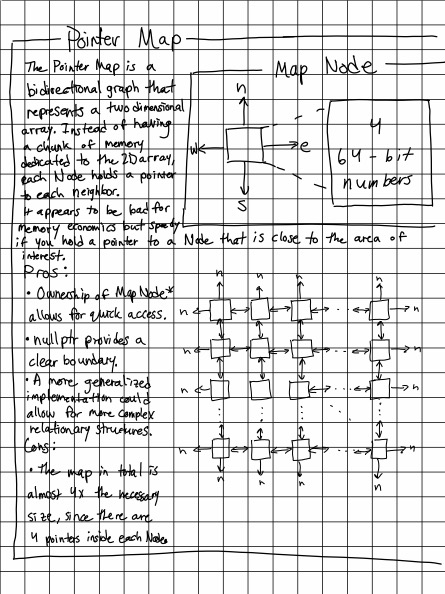 Pointer Map
The Pointer Map is a
bidirectional graph that
represents a two dimensional
array. Instead of having
a chunk of memory
dedicated to the 2D array,
each Node holds a pointer
to each neighbor.
It appears to be bad for
memory economics but speedy
if you hold a pointer to a Node that is close to the area of
interest.
Map Node
n
w
e
s
4
64-bit
numbers
Pros:
• Ownership of MapNode*
allows for quick access.
• nullptr provides a
clear boundary.
• A more generalized
implementation could
allow for more complex
relationary structures.
Cons:
• The map in total is
almost 4x the necessary
size, since there are
4 pointers inside each Node
n n n n
n n
n n
n n
n n
n n n n